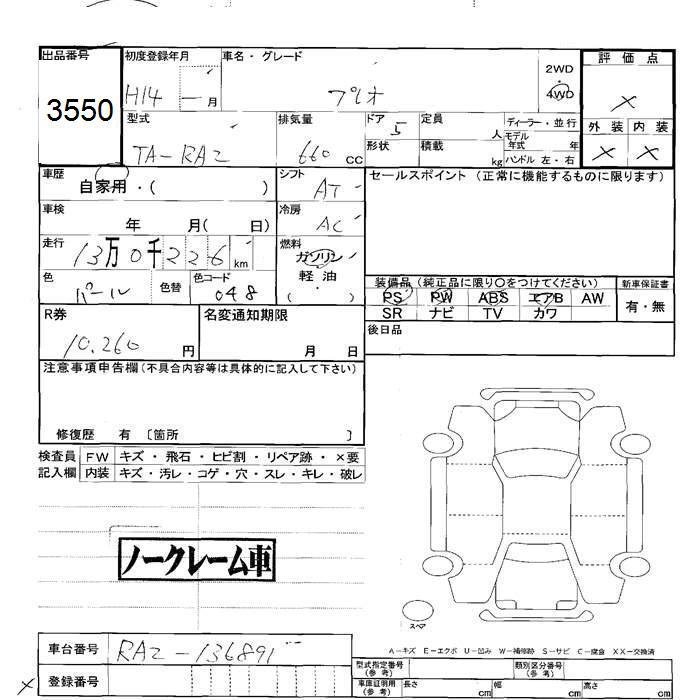 出品番号
3550
初度登録年月
H14 - 月
車名・グレード
プレオ
2WD
4WD
評価点
×
型式
TA-RA2
排気量
660 cc
ドア
5
定員
人
ディーラー・並行
モデル
年式 年
形状
積載
kg
ハンドル 左・右
外装
内装
×
×
車歴
自家用・( )
シフト
AT
セールスポイント (正常に機能するものに限ります)
車検
年 月( 日)
冷房
AC
走行
13万0千226km
燃料
ガソリン
軽油
( ・ )
色
パール
色替
色コード
048
装備品 (純正品に限り〇をつけてください)
新車保証書
PS PW ABS エアB AW
SR ナビ TV カワ
有・無
R券
10,260 円
名変通知期限
月 日
後日品
注意事項申告欄(不具合内容等は具体的に記入して下さい)
修復歴 有 〔箇所 〕
検査員
記入欄
FW キズ・飛石・ヒビ割・リペア跡・×要
内装 キズ・汚レ・コゲ・穴・スレ・キレ・破レ
ノークレーム車
スペア
A-キズ E-エクボ U-凹み W-補修跡 S-サビ C-腐食 XX-交換済
車台番号
RA2-136891
× 登録番号
型式指定番号
(参考)
類別区分番号
(参考)
車庫証明用
(参考)
長さ cm
幅 cm
高さ cm